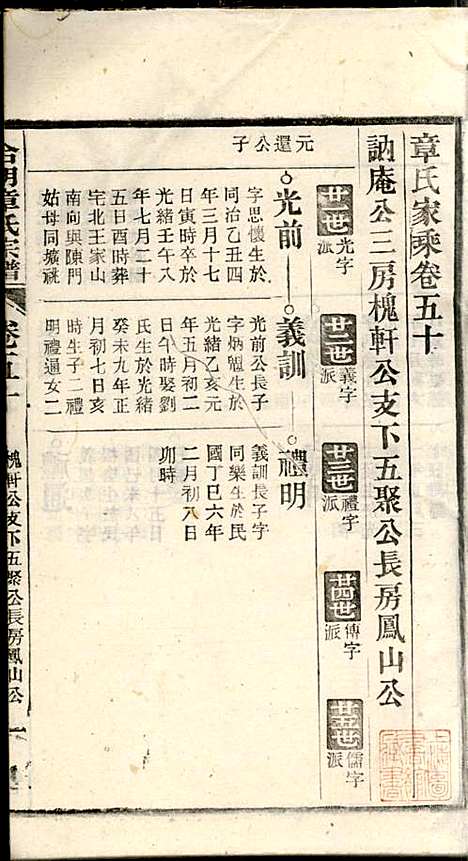 章氏家乘卷五十
訥庵公三房槐軒公支下五聚公長房鳳山公
廿一世 光字派
廿二世 義字派
廿三世 禮字派
廿四世 傳字派
廿五世 儒字派
元還公子
光前
義訓
禮明
字思懷生於
同治乙丑四
年三月十七
日寅時卒於
光緒壬午八
年七月二十
五日酉時葬
宅北王家山
南向與陳門
姑母同壙祔
光前公長子
字炳
光緒乙亥元
年五月初二
日午時娶劉
氏生於光緒
癸未九年正
月初七日亥
時生子二禮
明禮逼女二
義訓長子字
同樂生於民
國丁巳六年
二月初八日
卯時
章氏宗譜
卷五十
槐軒公支下五聚公長房鳳山公
一